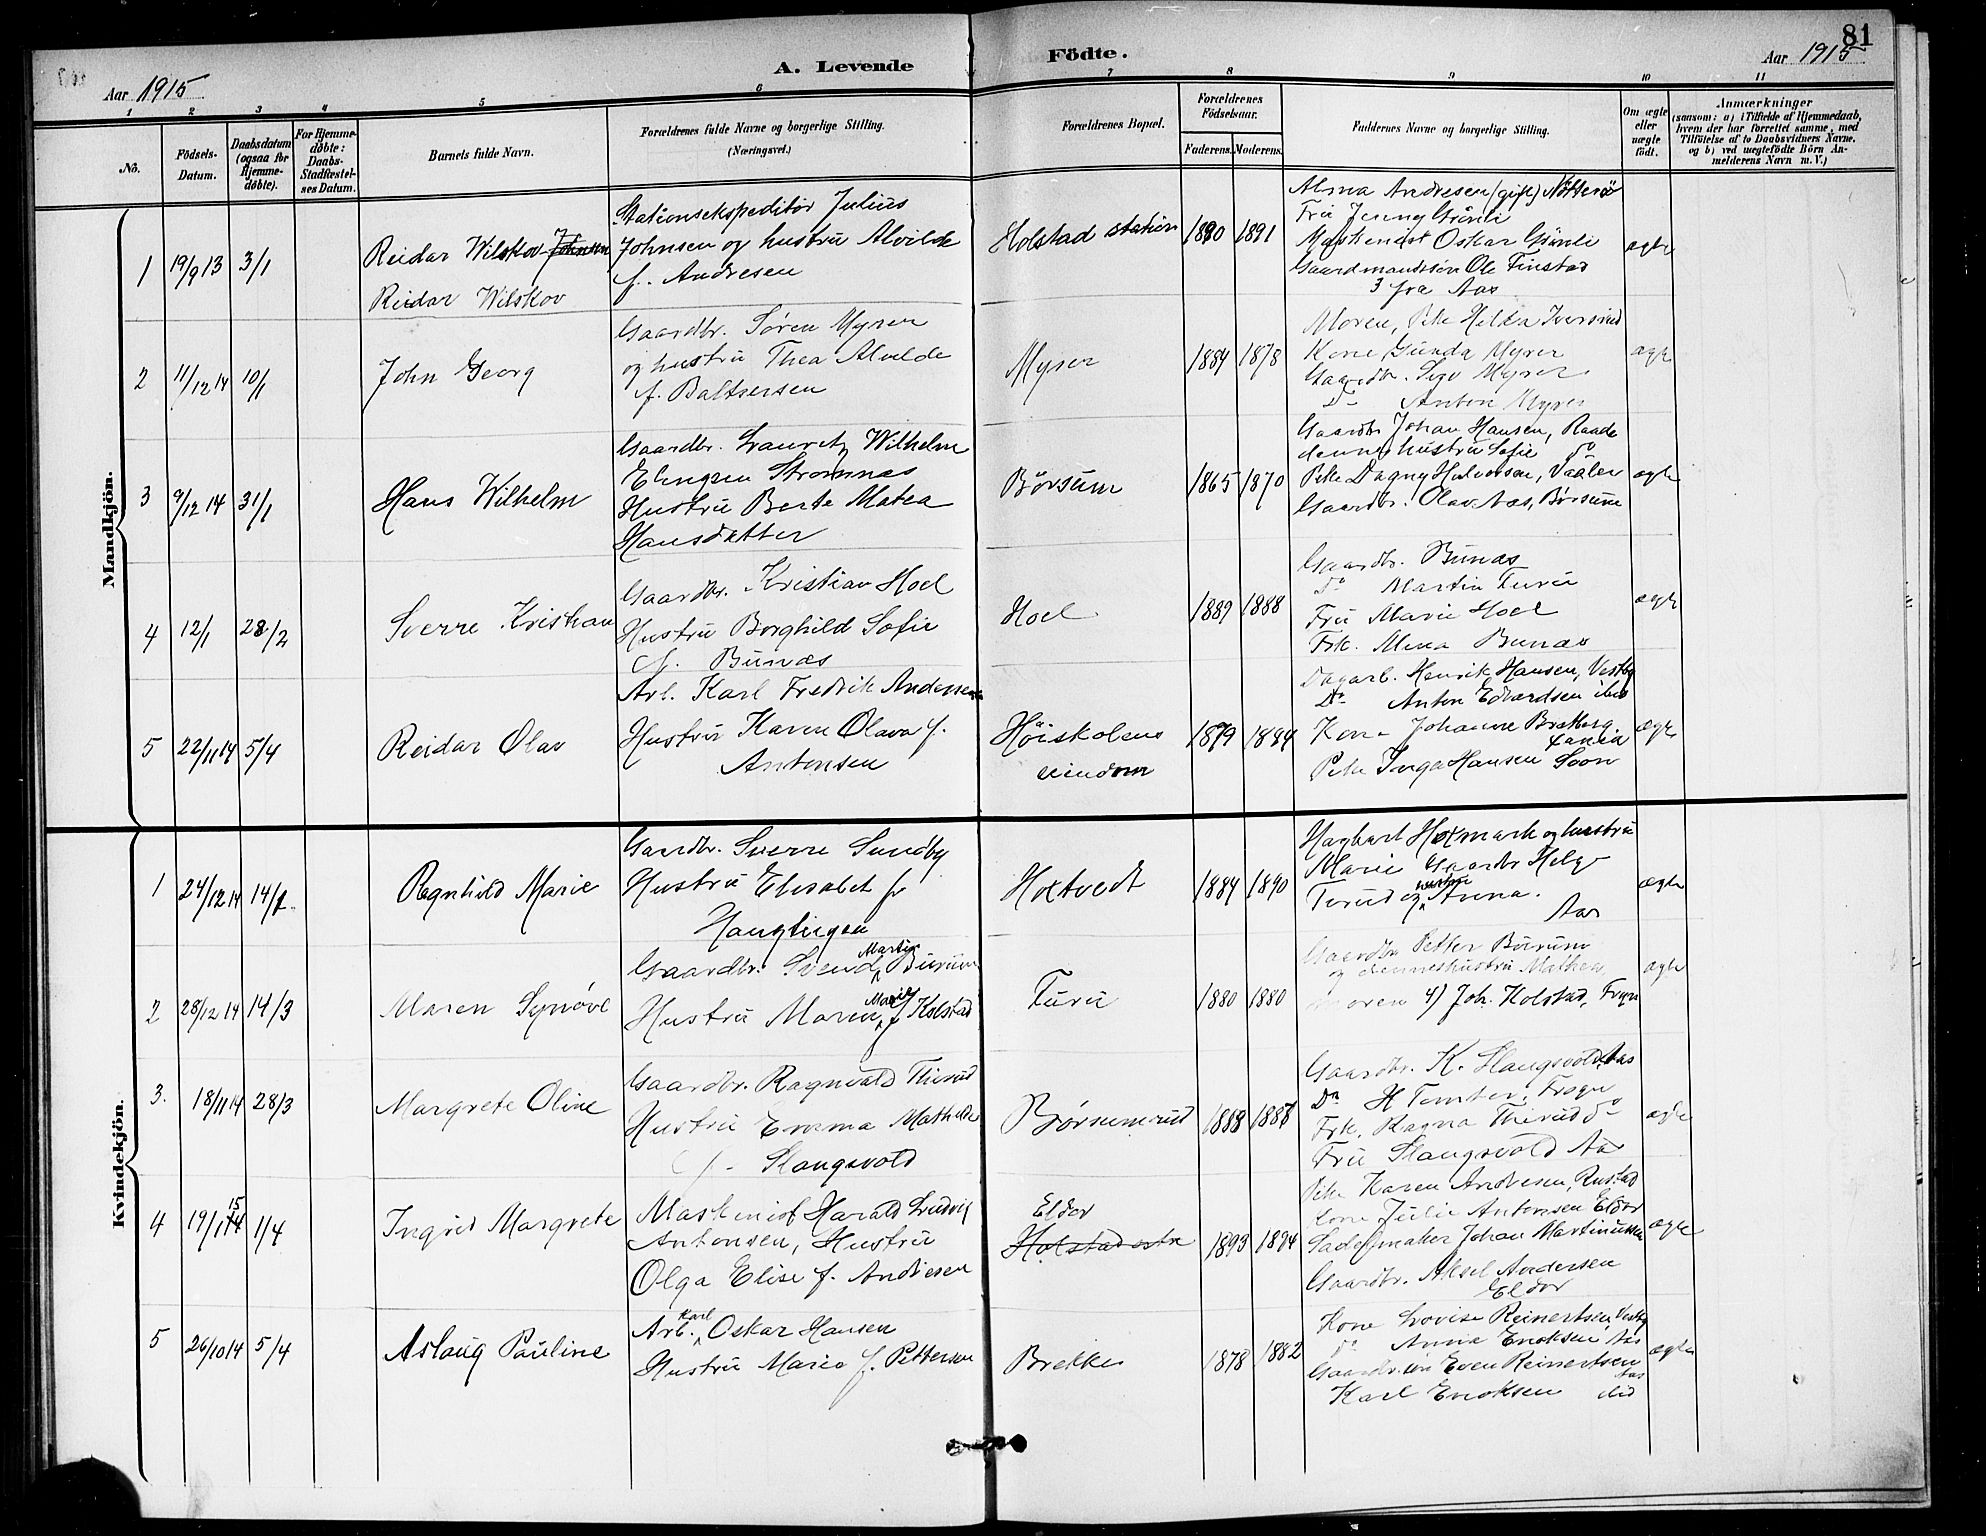 81
A. Levende Födte.
Aar 1915
Aar 1915
1 2 3 4 5 6 7 8 9 10 11
No.
Födsels-Datum.
Daabsdatum (ogsaa for Hjemme-döbte).
For Hjemme-döbte: Daabs-Stadfæstel-ses Datum.
Barnets fulde Navn.
Forældrenes fulde Navne og borgerlige Stilling.
(Næringsvei.)
Forældrenes Bopæl.
Forældrenes Födselsaar.
Faderens. Moderens.
Faddernes Navne og borgerlige Stilling.
Om ægte eller uægte födt.
Anmærkninger
(saasom: a) i Tilfælde af Hjemmedaab, hvem der har forrettet samme, med Tilföielse af to Daabsvidners Navne, og b) ved uægtefödte Börn Anmelderens Navn m. V.)
Mandkjön.
1 19/9 13 3/1
Reidar Wilskov Johnsen
Reidar Wilskov
Stationsekspeditør Julius
Johnsen og hustru Alvilde
f. Andresen
Holstad station 1890 1891
Alma Andresen (gift) Nøtterø
Fru Jenny Grønli
Maskenist Oskar Grønli
Gaardmandssøn Ole Finstad
3 fra Aas
ægte
2 11/12 14 10/1
John Georg
Gaardbr. Søren Myrer
og hustru Thea Alvilde
f. Baltsersen
Myrer 1884 1878
Moren, Pike Helda Iversrud
Kone Gunda Myrer
Gaardbr. Myrer
Do Anton Myrer
ægte
3 9/12 14 31/1
Hans Wilhelm
Gaardbr. Lauritz Wilhelm
Elingsen Strømnæs
Hustru Berte Matea
Hansdatter
Børsum 1865 1870
Gaardbr Johan Hansen, Raade
dennes hustru Sofie do
Pike Dagny Halvorsen, Vaaler
Gaardbr. Olav Aas, Børsum
ægte
4 12/1 28/2
Sverre Kristian
Gaardbr. Kristian Hoel
Hustru Borghild Sofie
f. Bunæs
Hoel 1889 1888
Gaardbr. Bunæs
Do Martin Furu
Fru Marie Hoel
Frk. Mina Bunæs
ægte
5 22/11 14 5/4
Reidar Olav
Arb. Karl Fredrik Andersen
Hustru Karen Olava f.
Antonsen
Høiskolens
eiendom
1879 1884
Dagarb. Henrik Hansen, Vestby
Do Anton Edvardsen ibid
Kone Johanne Bratberg
Pike Inga Hansen Soon
ægte
Kvindekjön.
1 24/12 14 14/2
Ragnhild Marie
Gaardbr. Sverre Sundby
Hustru Elisabet f.
Haugtingen
Hoxtvedt 1884 1890
Hagbart Hoxmark og hustru
Marie Gaardbr Helge
Terud og hustru Anna.
Aas
ægte
2 28/12 14 14/3
Maren Synøve
Gaardbr. Svend Martin Burum
Hustru Maren Marie f Kolstad
Furu 1880 1880
Gaardbr Petter Burum
og denneshustru Mathea,
moren 4) Joh. Kolstad, Frogn
ægte
3. 18/11 14 28/3
Margrete Oline
Gaardbr. Ragnvald Thirud
Hustru Emma Mathilde
f. Slangsvold
Børsumrud 1888 1887
Gaardbr. K. Slangsvold, Aas
Do H Temter, Frogn
Frk. Ragna Thirud do
Fru Slangsvold Aas
ægte
4 19/1 15 1/4
Ingrid Margrete
Maskinist Harald Ludvig
Antonsen, Hustru
Olga Elise f. Andresen
Eldor
Holstad østre
1893 1894
Pike Karen Andresen, Rustad
Kone Julie Antonsen Eldor
Sadelmaker Johan Martinussen
Gaardbr. Aksel Andersen
Eldor
ægte
5 26/10 14 5/4
Aslaug Pauline
Arb. Karl Oskar Hansen
Hustru Maria f. Pettersen
Brekke 1878 1882
Kone Lovise Reinertsen, Vestby
do Anna Enoksen Aas
Gaardbr. søn Even Reinertsen
Aas
Karl Enoksen ibid
ægte